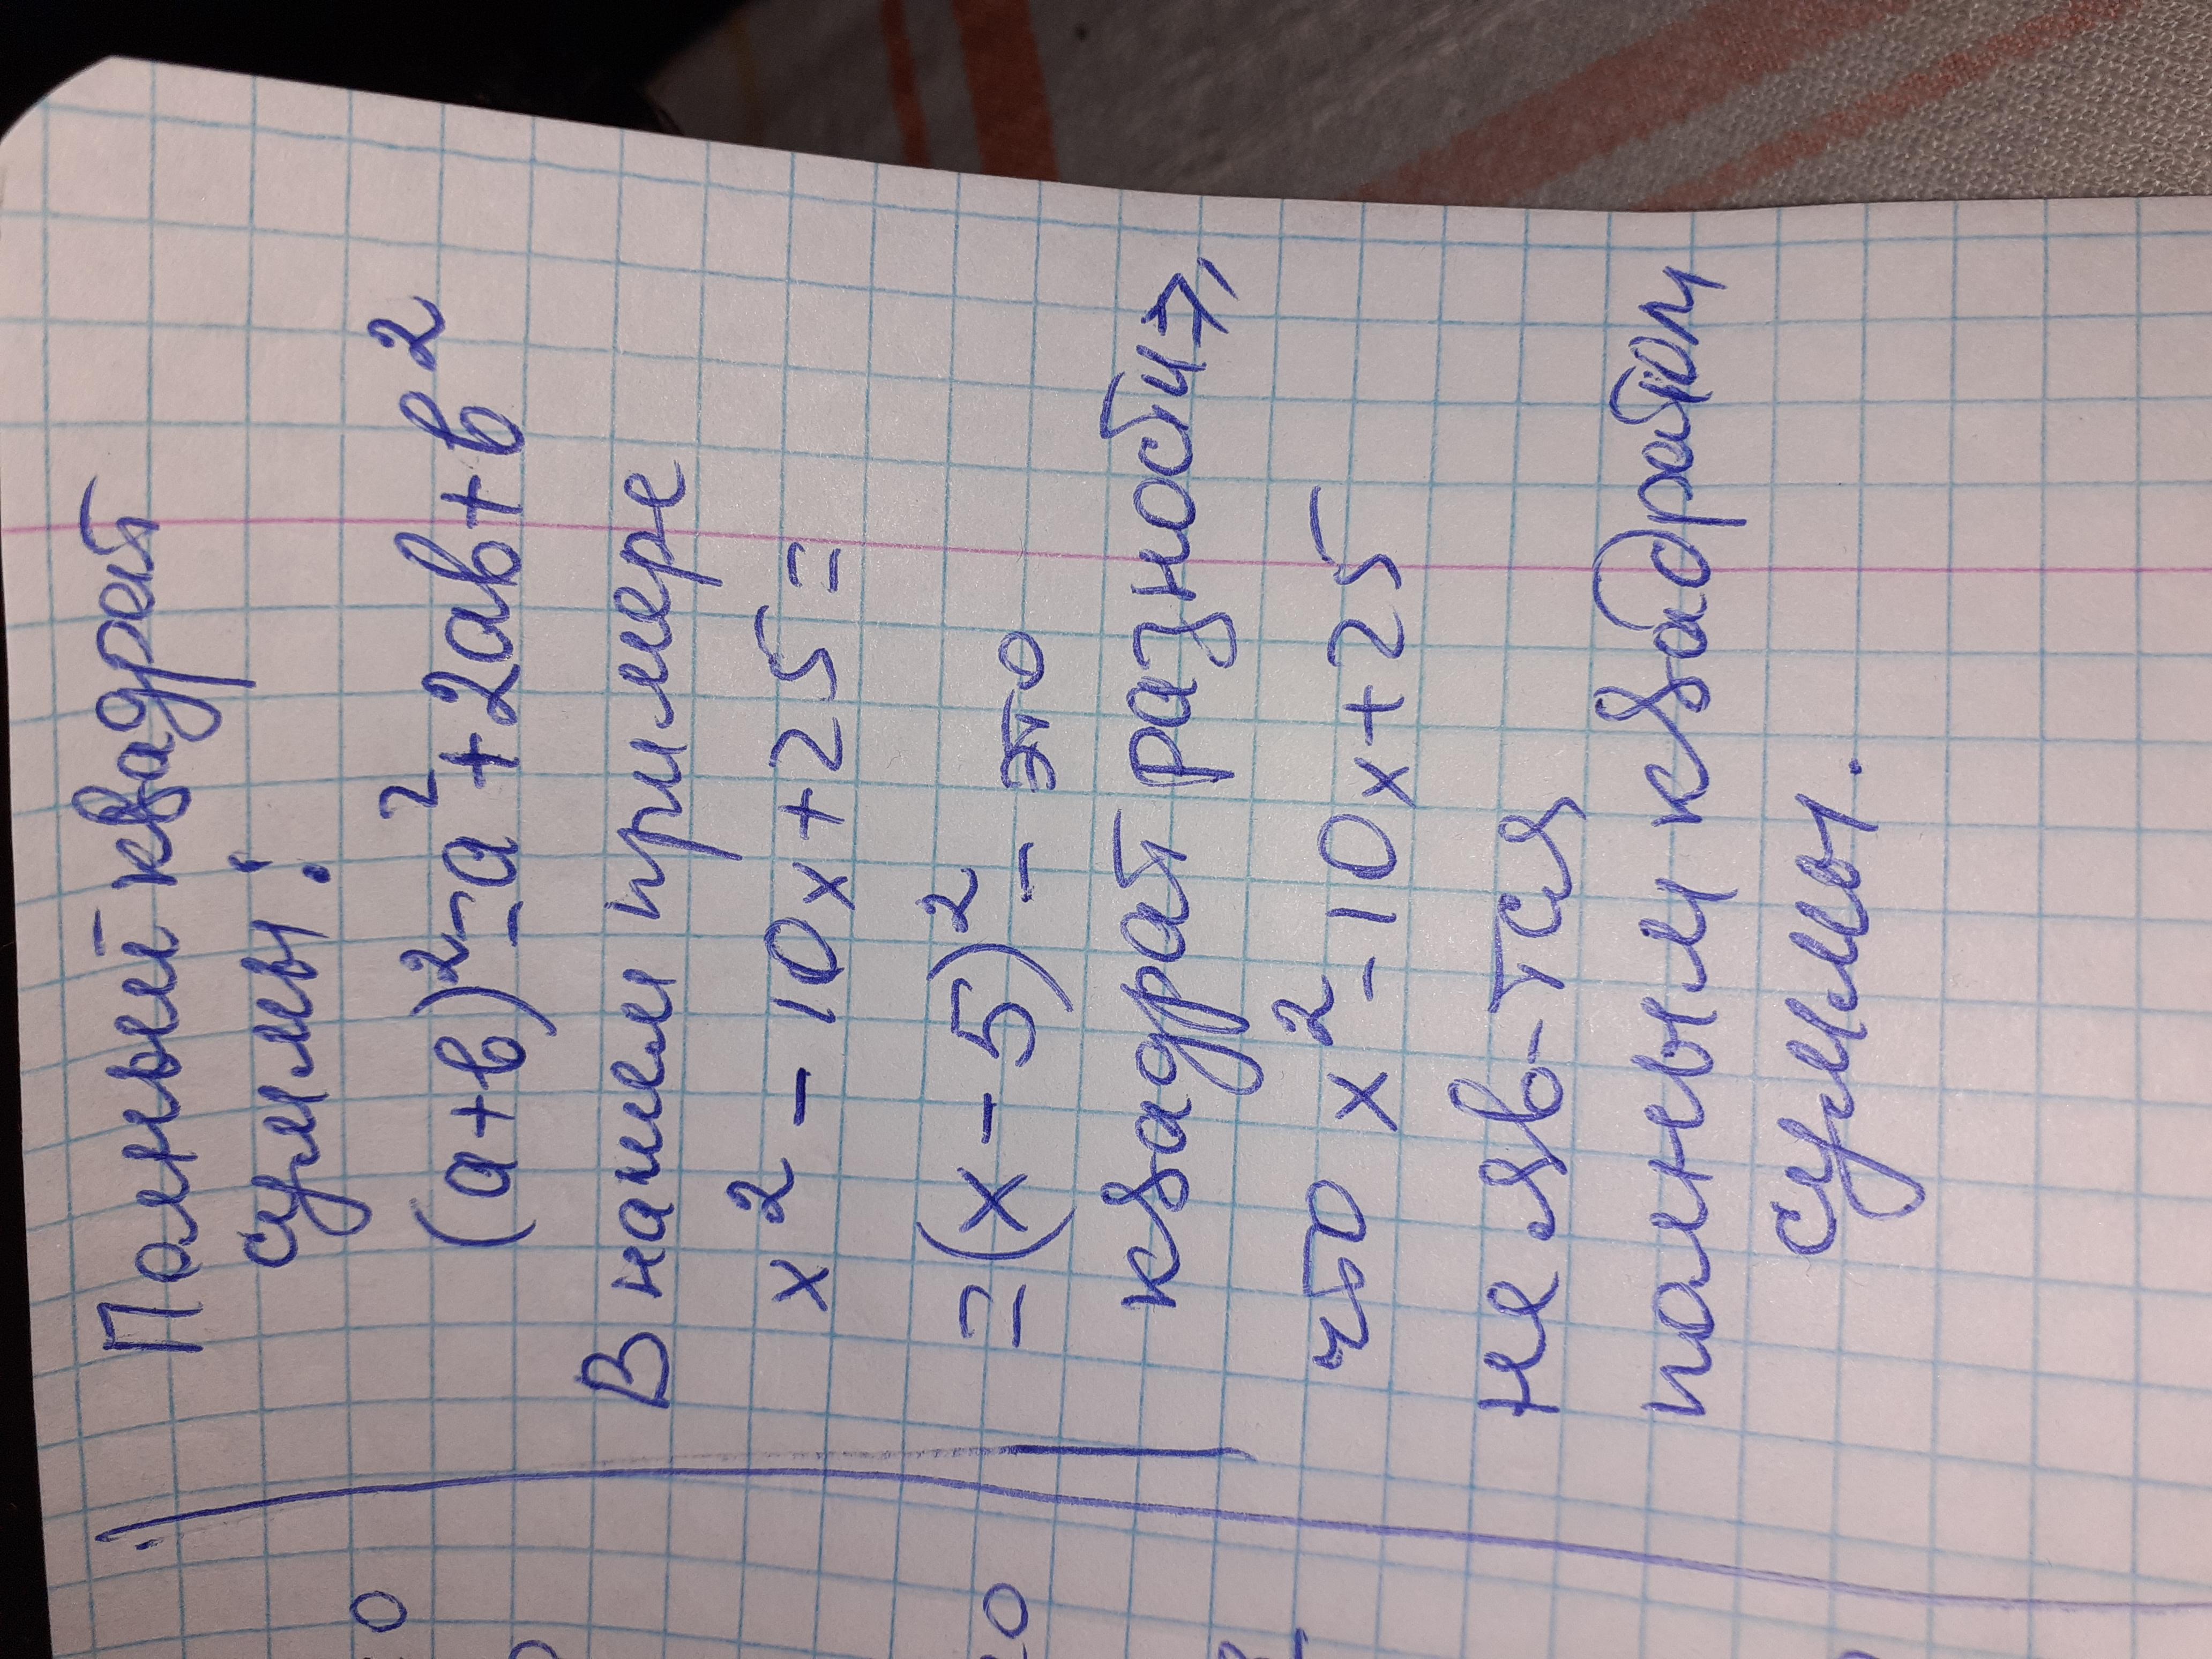 Полный квадрат
суммы:
(а+в)²=а²+2ав+в²
В нашем примере
х²-10х+25=
=(х-5)² - это
квадрат разности,
что х²-10х+25
не яв-тся
полным квадратом
суммы.